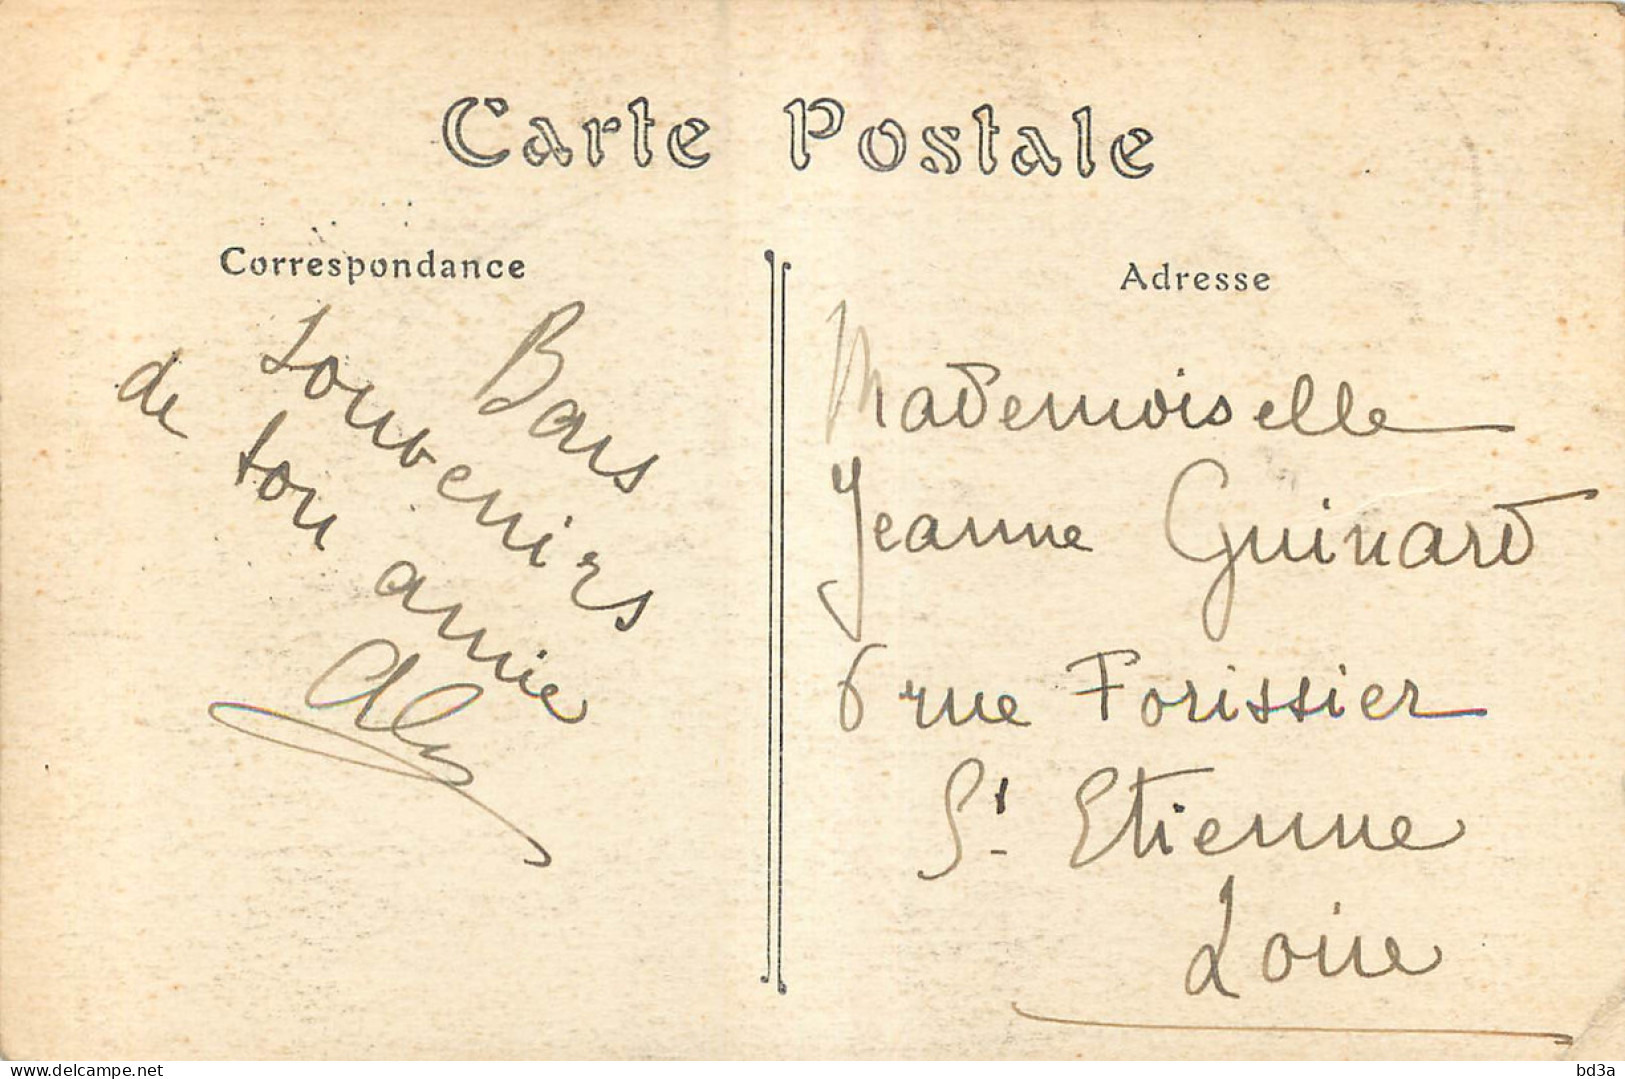 Carte Postale
Correspondance
Bons
Souvenirs
de ton amie
Aly
Adresse
Mademoiselle
Jeanne Guinard
6 rue Forissier
St. Etienne
Loire
www.delcampe.net
bd3a